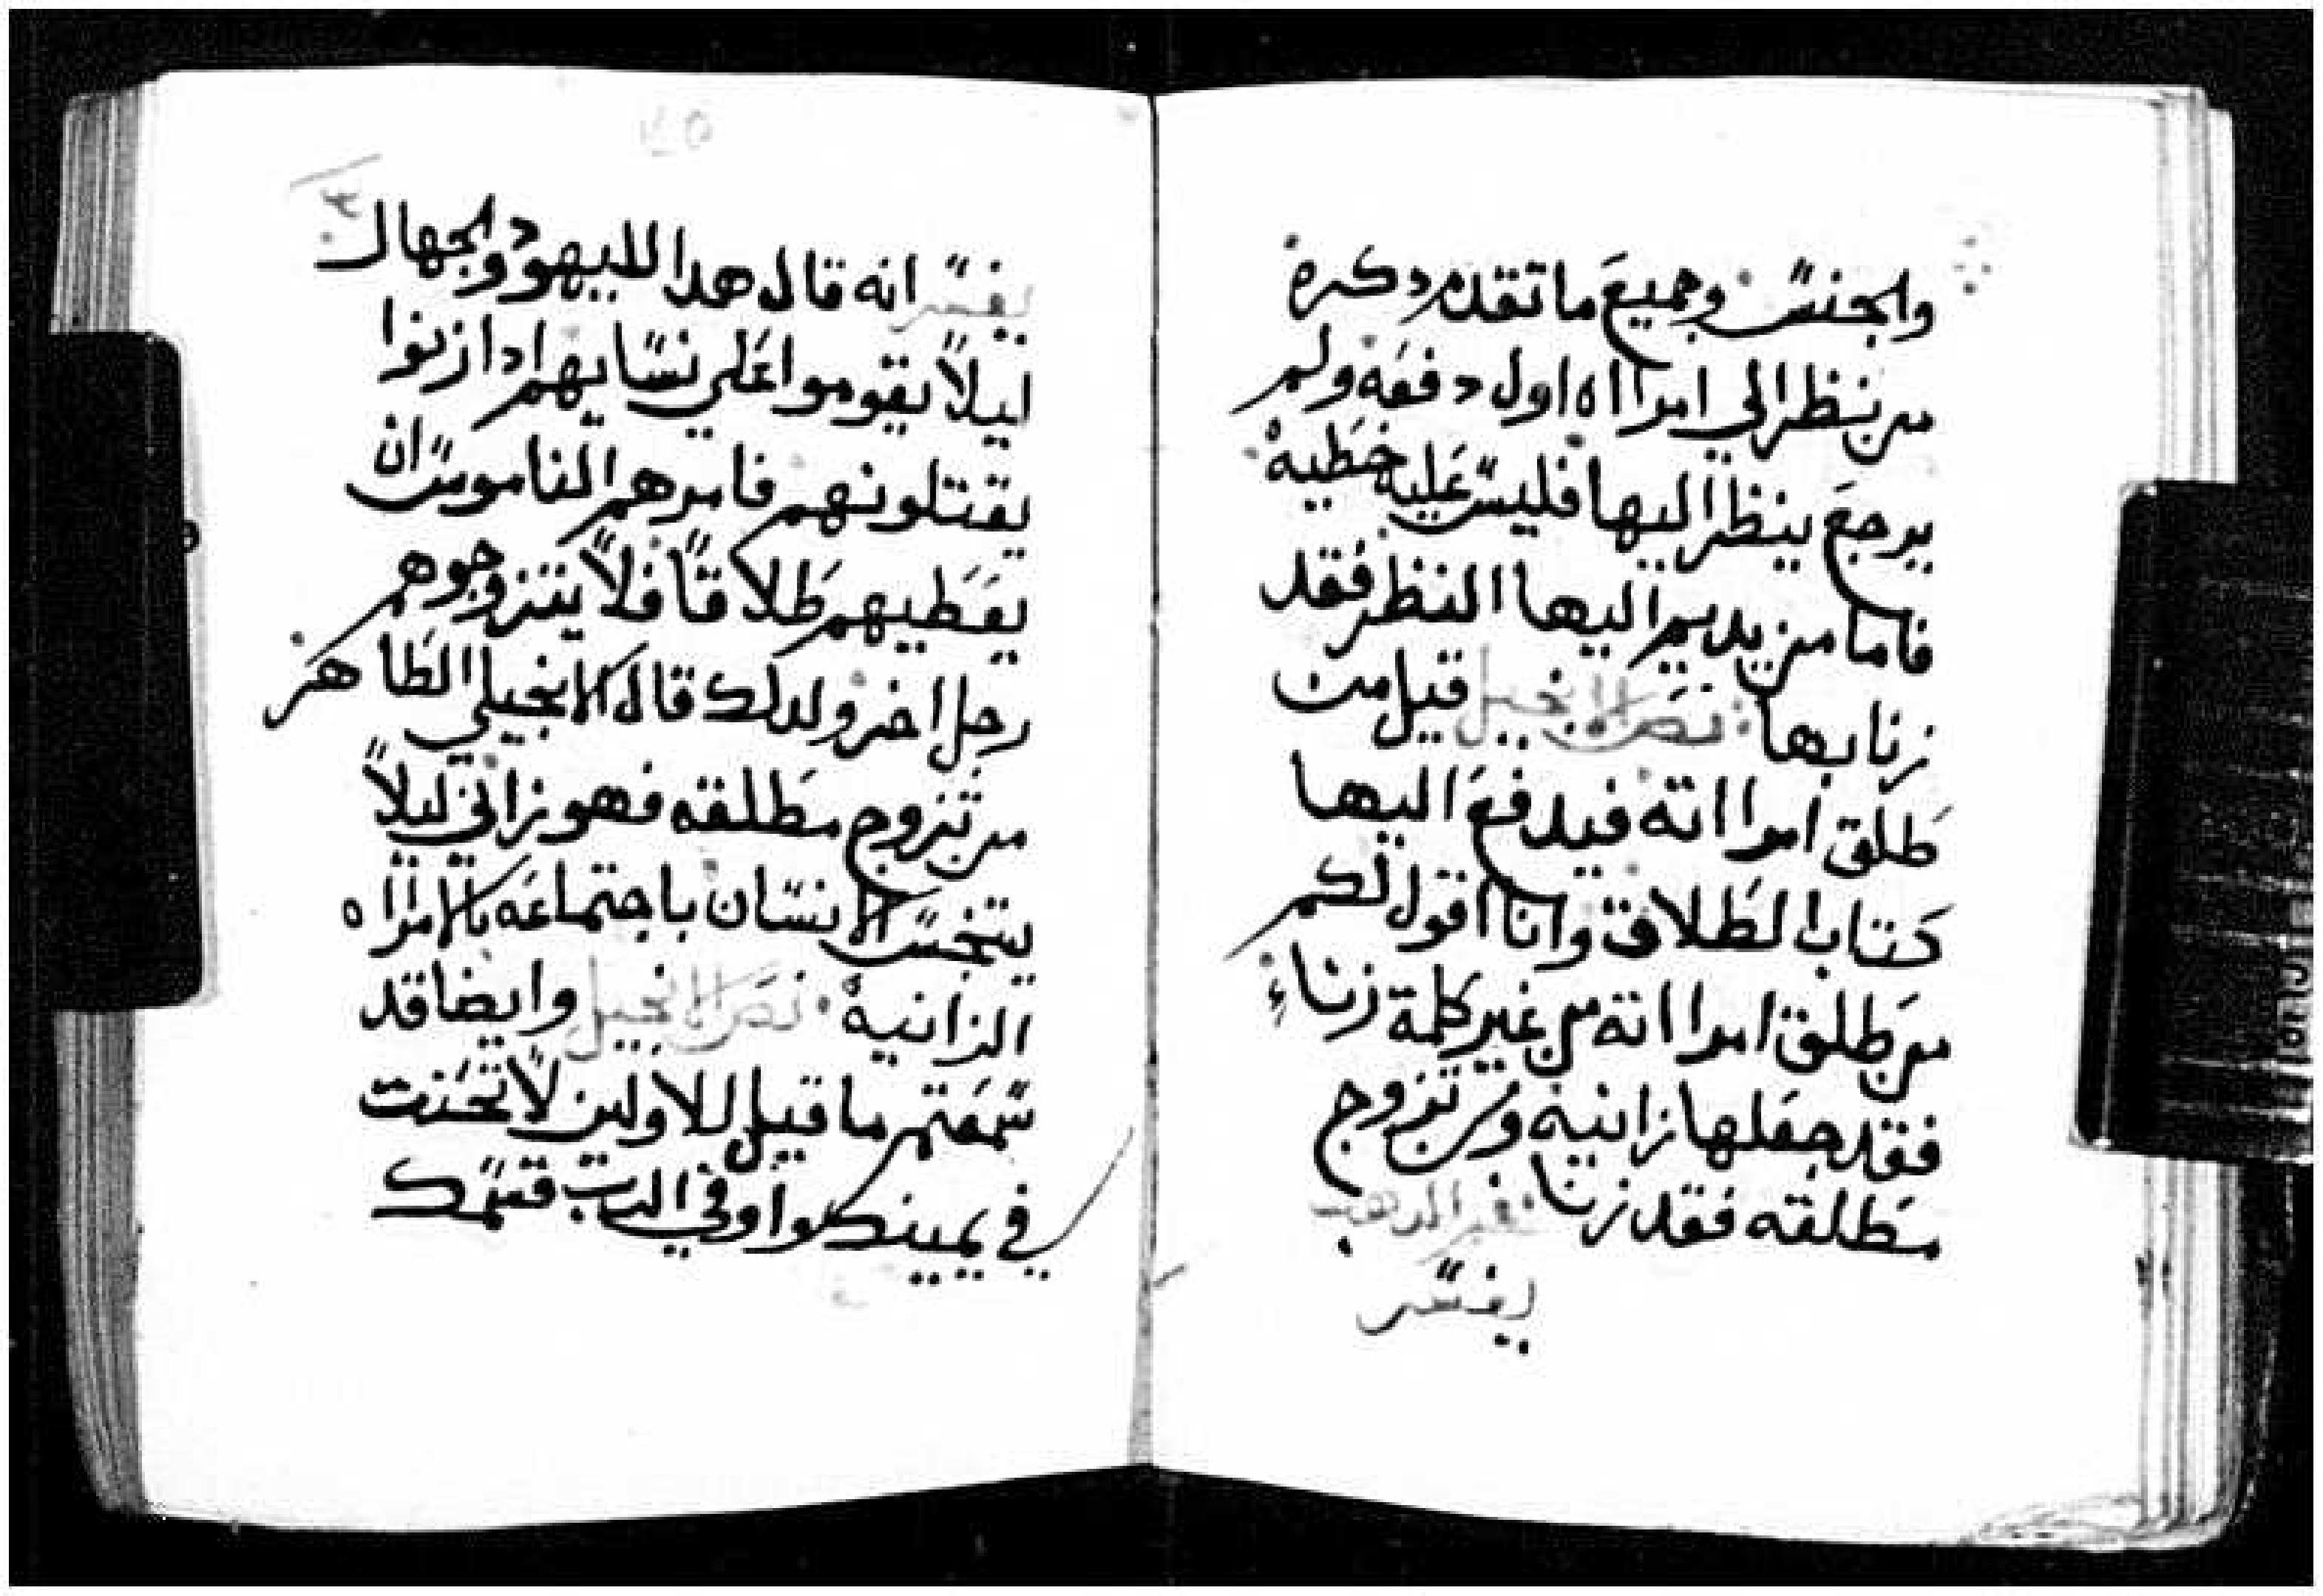 والجنس وجميع ما تقدم دكره
من ينظر الي امرااه اول دفعه ولم
يرجع ينظر اليها فليس عليه خطيه
فاما من يديم اليها النظر فقد
زنا بها نص الانجيل قيل من
طلق امرااته فيدفع اليها
كتاب الطلاق وانا اقول لكم
من طلق امرااته من غير كلمة زناء
فقد جعلها زانيه ومن تزوج
مطلقه فقد زنا فم الدهب
يفسر
يفسر انه قال هدا لليهود الجهال
ليلاً يقوموا علي نسايهم ادا زنوا
يقتلونهم فامرهم الناموس ان
يعطيهم طلاقاً فلا يتزوجوهم
رجل اخر ولدلك قال الانجيلي الطاهر
من تزوج مطلقه فهو زاني ليلاً
يتنجس الانسان باجتماعه بالامرااه
الزانيه نص الانجيل وايضا قد
سمعتم ما قيل للاولين لا تحنت
في يمينك واوفي الرب قسمك